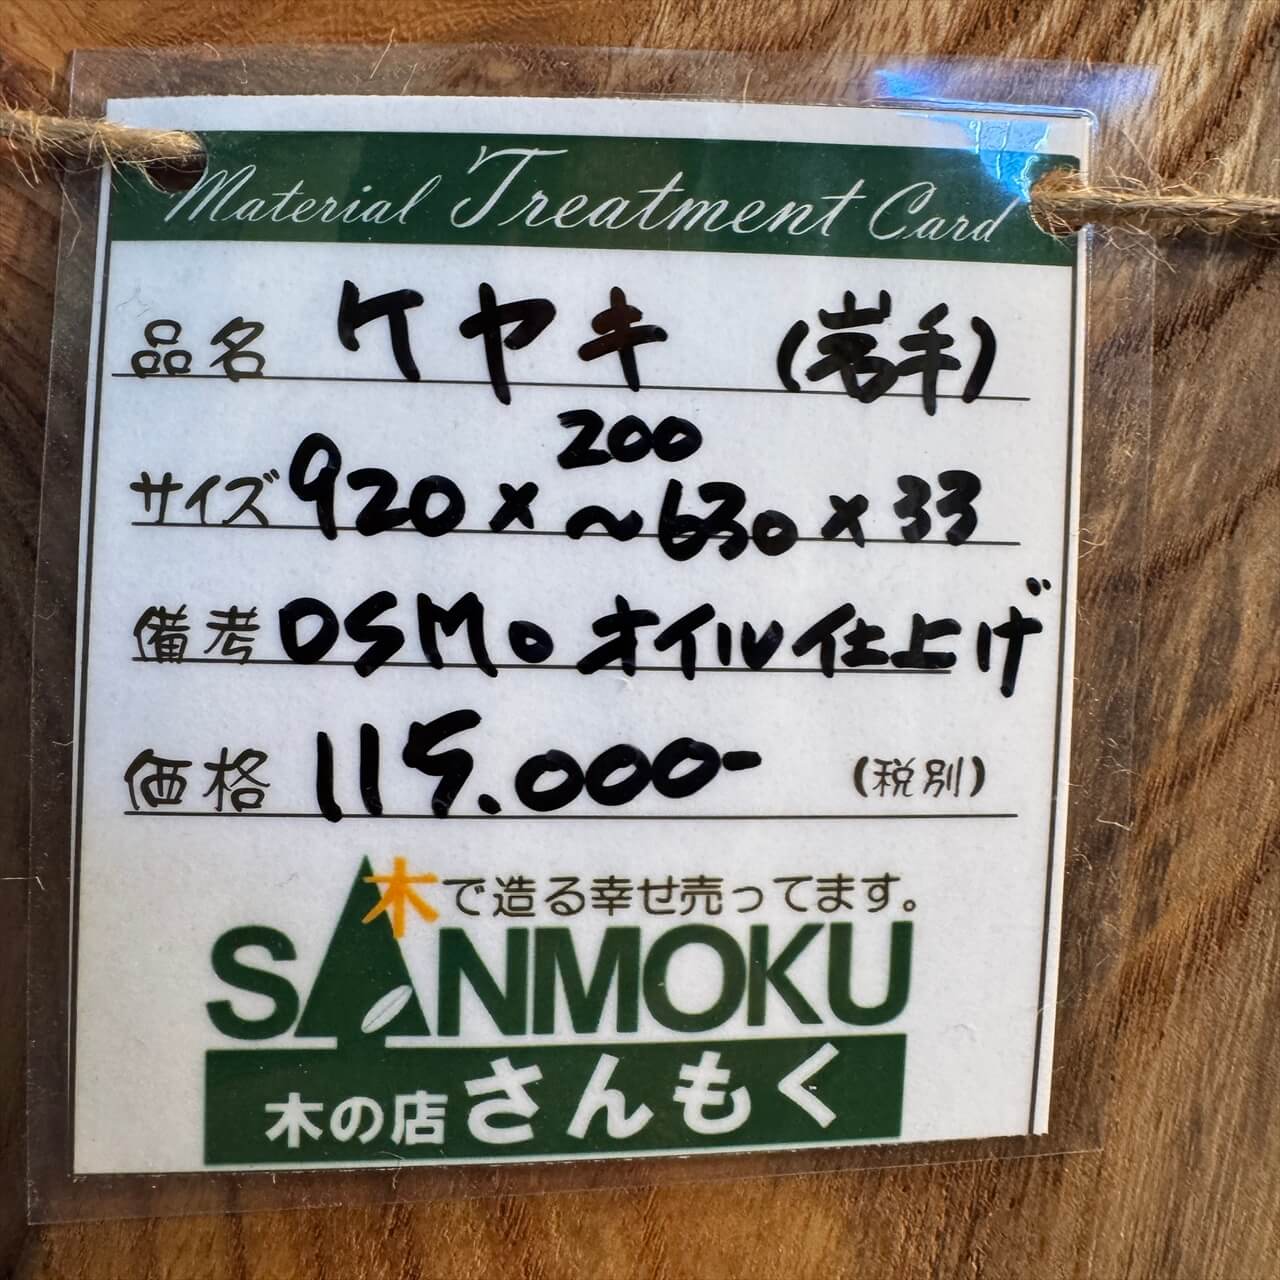 Material Treatment Card
品名 ケヤキ (岩手)
サイズ 920 × 200～630 × 33
備考 OSMO オイル仕上げ
価格 115.000- (税別)
木で造る幸せ売ってます。
SANMOKU
木の店 さんもく